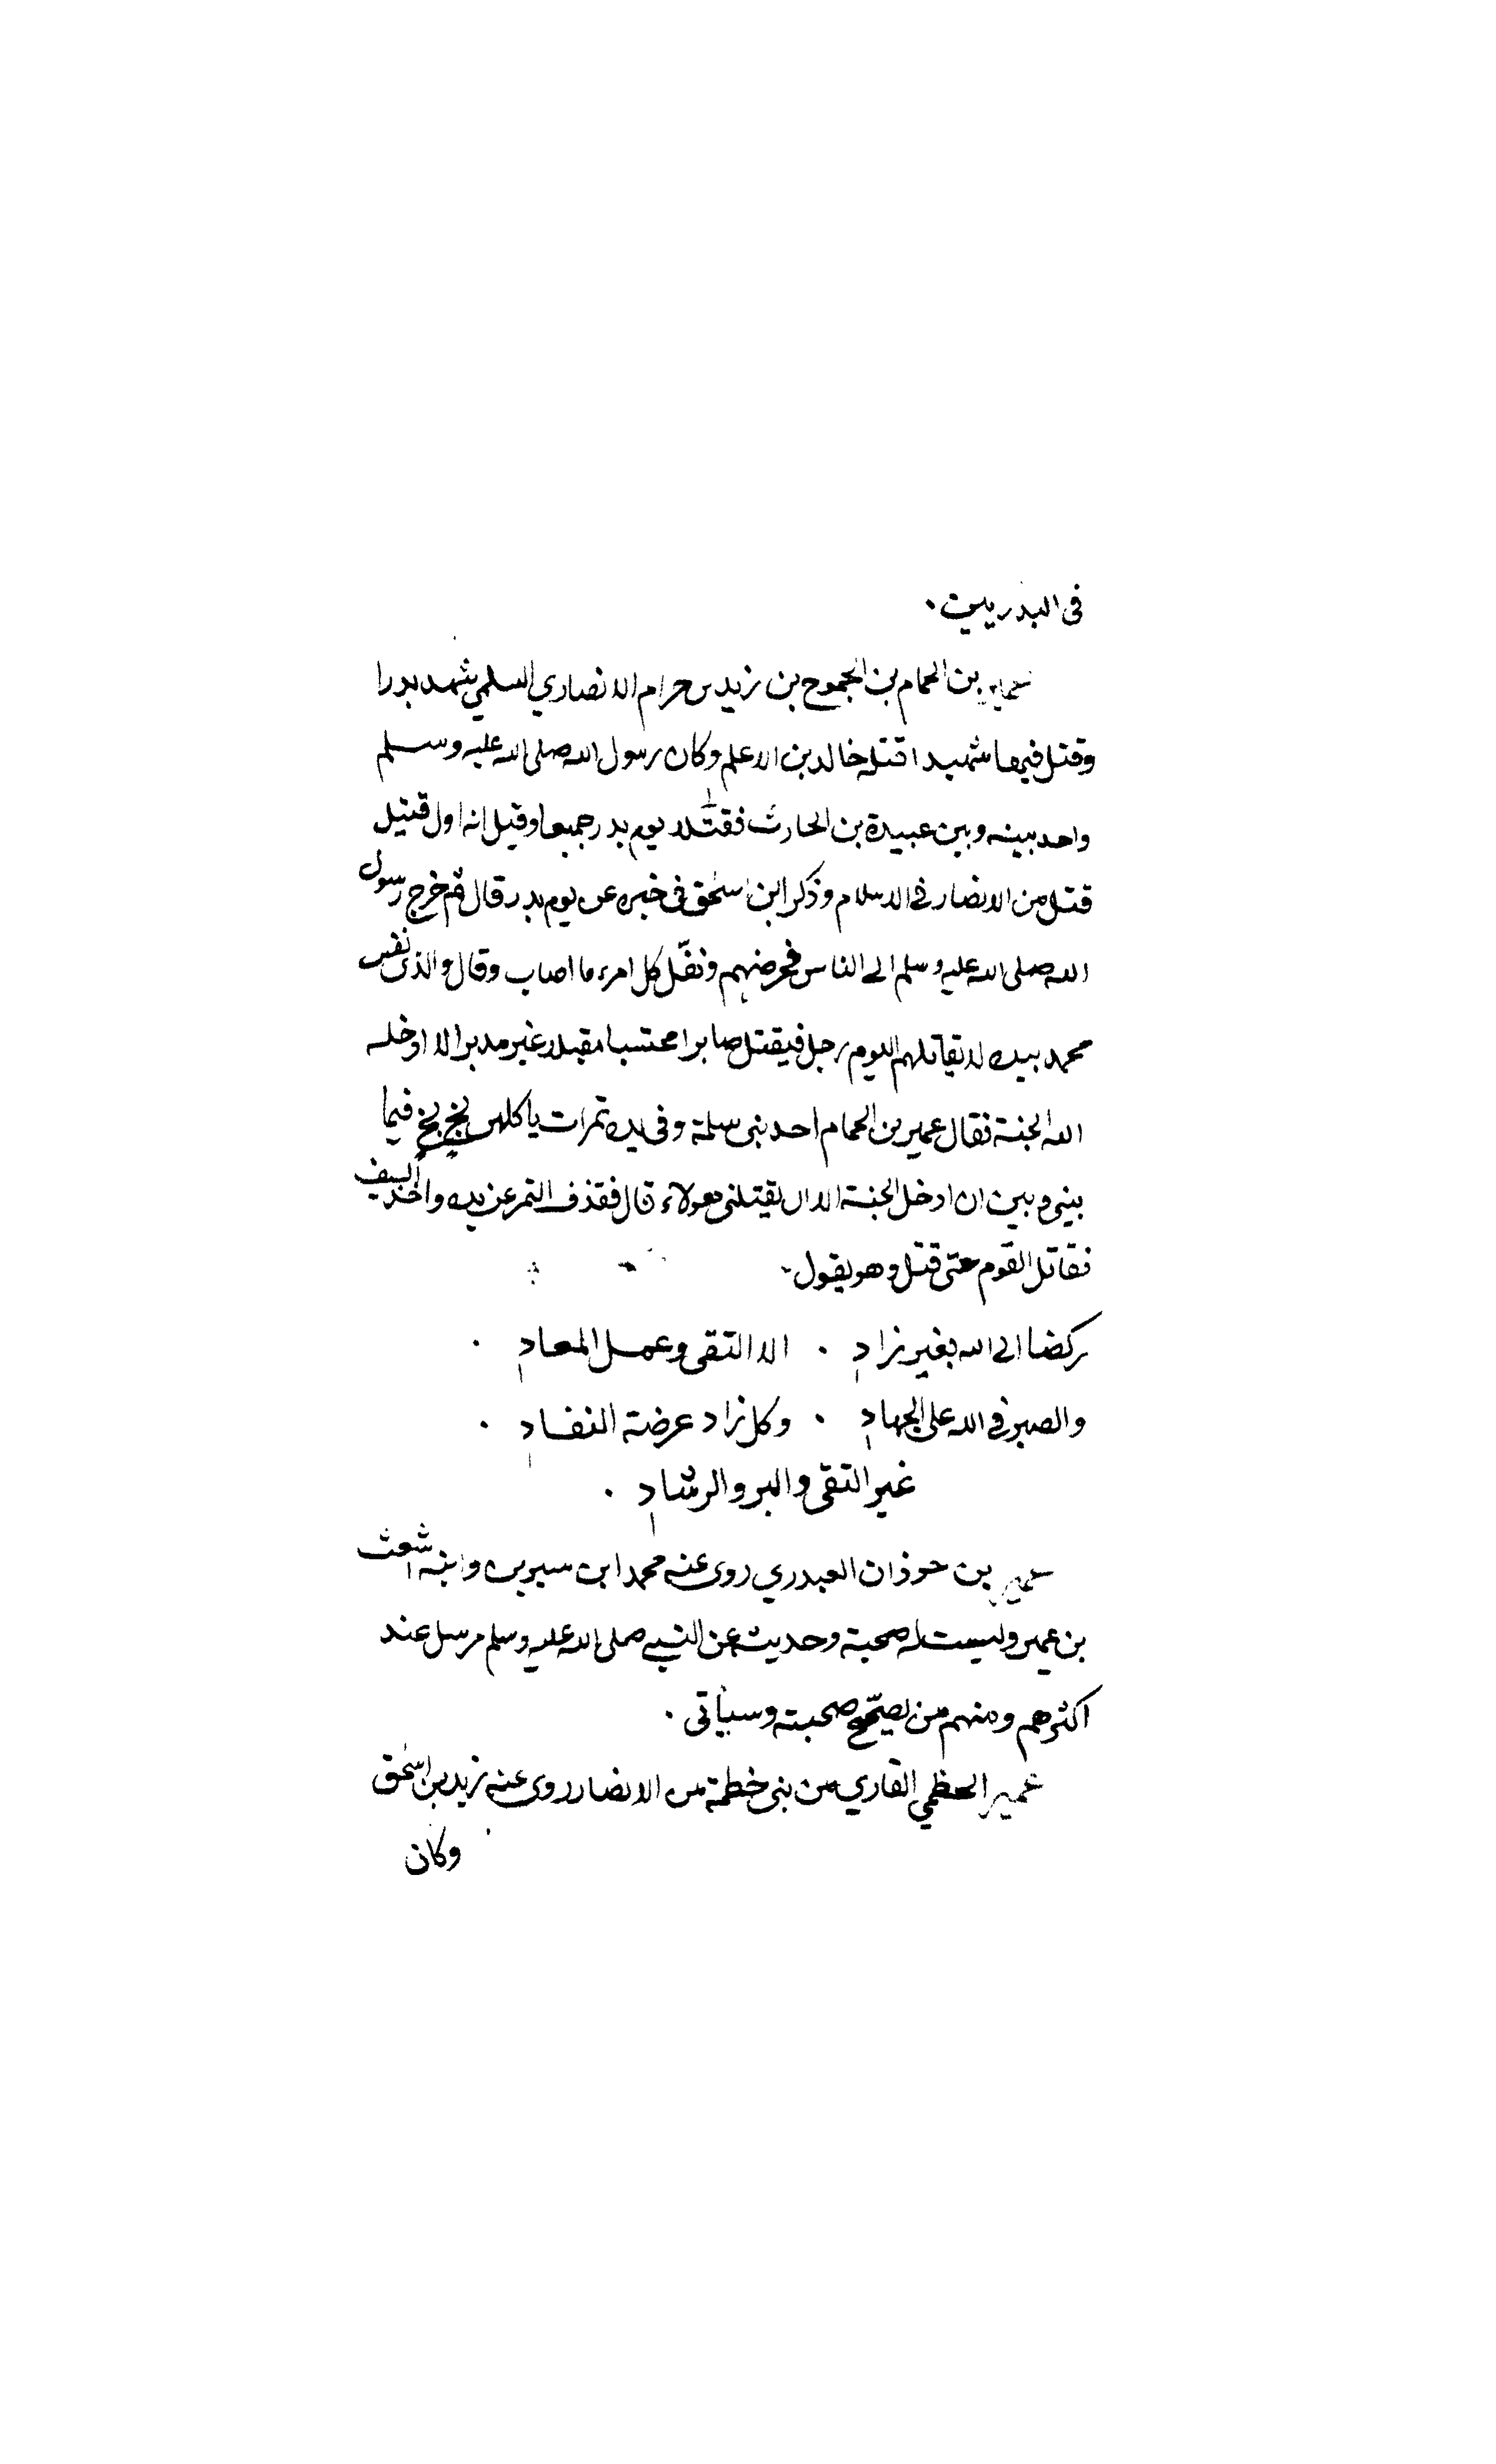 في البدريين .
عمير بن الحمام بن الجموح بن زيد بن حرام الانصاري السلمي شهد بدرا
وقتل فيها شهيدا قتله خالد بن الاعلم وكان رسول الله صلى الله عليه وسلم
واحد بينه وبين عبيدة بن الحارث فقتلا يوم بدر جميعا وقيل انه اول قتيل
قتل من الانصار في الاسلام وذكر ابن اسحق في خبره عن يوم بدر قال ثم خرج رسول
الله صلى الله عليه وسلم الى الناس فحرضهم ونفّل كل امرء ما اصاب وقال والذى نفس
محمد بيده لا يقاتلهم اليوم رجل فيقتل صابرا محتسبا مقبلا غير مدبر الا ادخله
الله الجنة فقال عمير بن الحمام احد بنى سلمة وفى يده تمرات ياكلهن بخ بخ فيما
بينى وبين ان ادخل الجنة الا ان يقتلنى هولاء قال فقذف التمر عن يده واخذ السيف
فقاتل القوم حتى قتل وهو يقول
ركضا الى الله بغير زادِ . الا التقى وعمل المعادِ .
والصبر في الله على الجهادِ . وكل زاد عرضة النفادِ .
غير التقى والبر والرشادِ .
عمير بن حوذان العبدري روى عنه محمد ابن سيرين وابنه اشعث
بن عمير وليست له صحبة وحديثه عن النبي صلى الله عليه وسلم مرسل عند
اكثرهم ومنهم من يصحّح صحبته وسيأتى .
عمير الخطمي القاري من بنى خطمة من الانصار روى عنه زيد بن اسحق
وكان